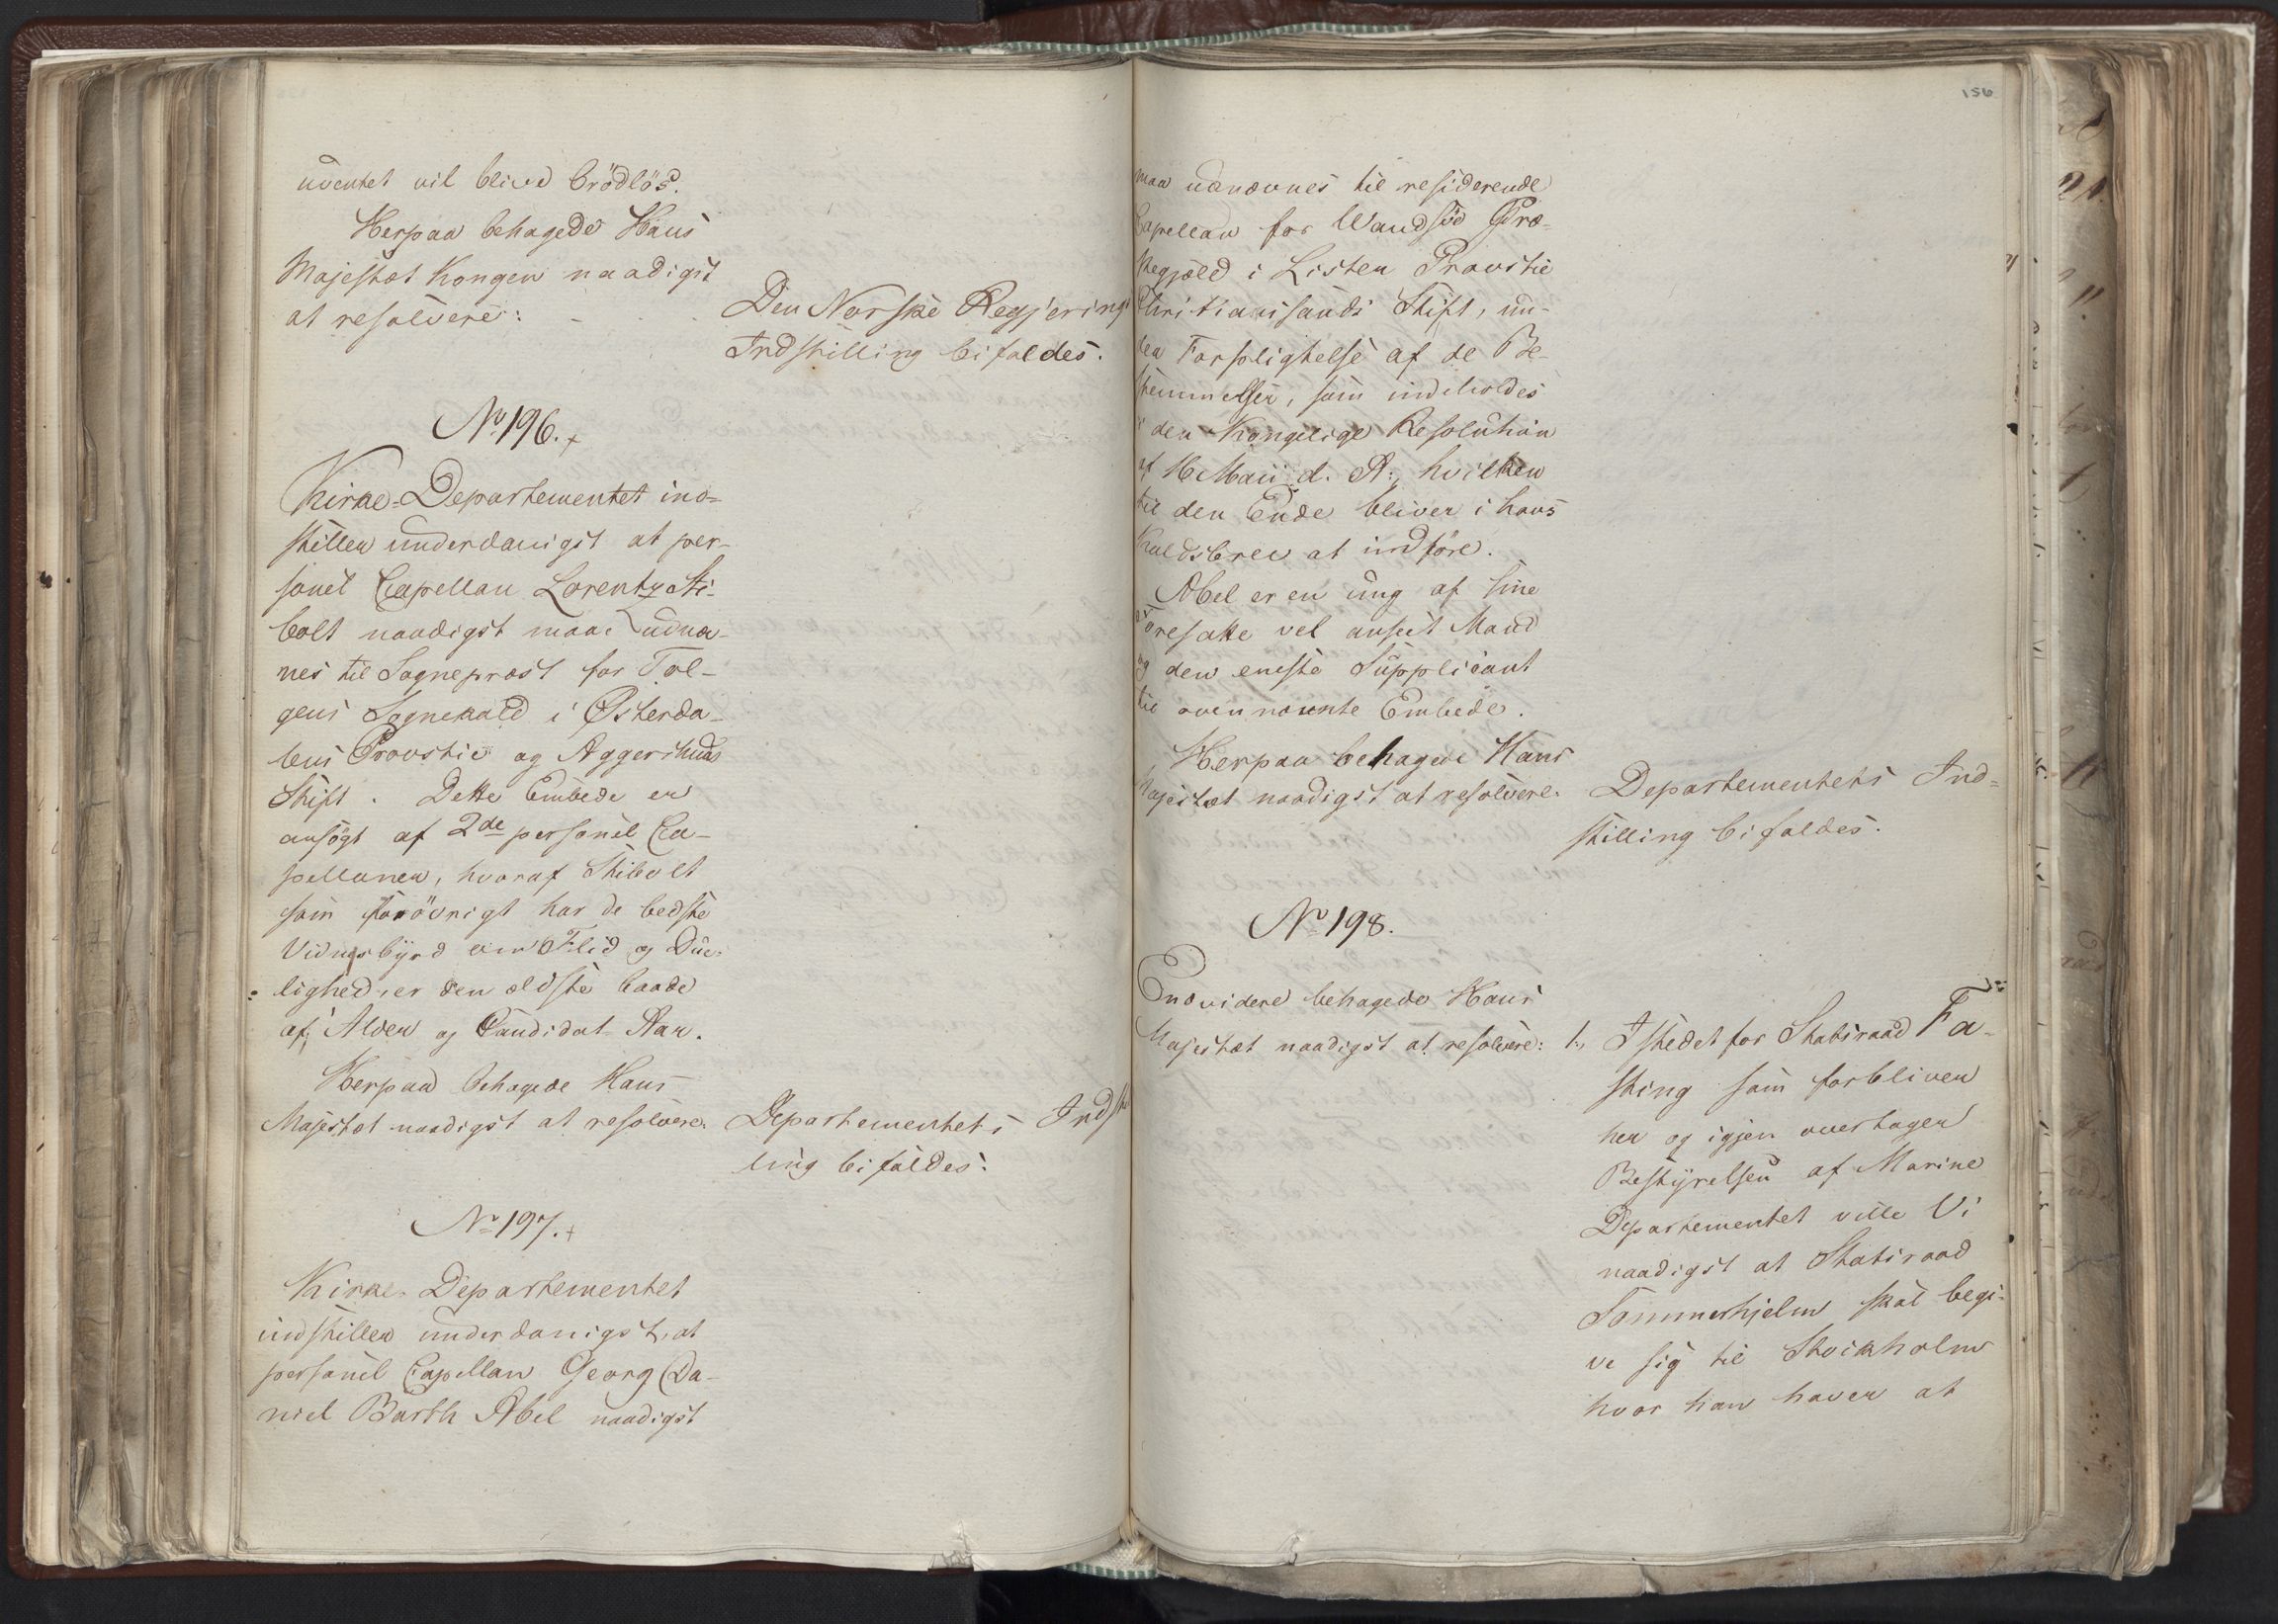 uventet vil blive brödlös.
Herpaa behagede Hans
Majestæt Kongen naadigst
at resolvere: - - -
Den Norske Regjerings
Indstilling bifaldes.
No 196. +
Kirke-Departementet ind-
stiller underdanigst at per-
sonel Capellan Lorentz Sti-
bolt naadigst maae udnæv-
nes til Sognepræst for Tol-
gens Sognekald i Østerda-
lens Provstie og Aggershuus
Stift. Dette Embede er
ansögt af 2de personel Ca-
pellaner, hvoraf Stibolt
som forövrigt har de bedste
Vidnesbyrd om Flid og Due-
lighed, er den ældste baade
af Alder og Candidat Aar.
Herpaa behagede Hans
Majestæt naadigst at resolvere:
Departementets Indstil
ling bifaldes.
No 197. +
Kirke-Departementet
indstiller underdanigst, at
personel Capellan Georg Da-
niel Barth Abel naadigst
156
maa udnævnes til residerende
Capellan for Wandsöe Præ-
stegjæld i Lister Provstie
Christiansands Stift, un-
der Forpligtelse af de Be-
stemmelser, som indeholdes
i den Kongelige Resolution
af 16 Maii d. A:, hvilken
til den Ende bliver i hans
Kaldsbrev at indföre.
Abel er en ung af sine
Foresatte vel anseet Mand
og den eneste Supplicant
til ovennævnte Embede.
Herpaa behagede Hans
Majestæt naadigst at resolvere:
Departementets Ind-
stilling bifaldes.
No 198.
Endvidere behagede Hans
Majestæt naadigst at resolvere:
1., Istedet for Statsraad Fa-
sting som forbliver
her og igjen overtager
Bestyrelsen af Marine
Departementet ville Vi
naadigst at Statsraad
Sommerhjelm skal begi-
ve sig til Stockholm
hvor han haver at